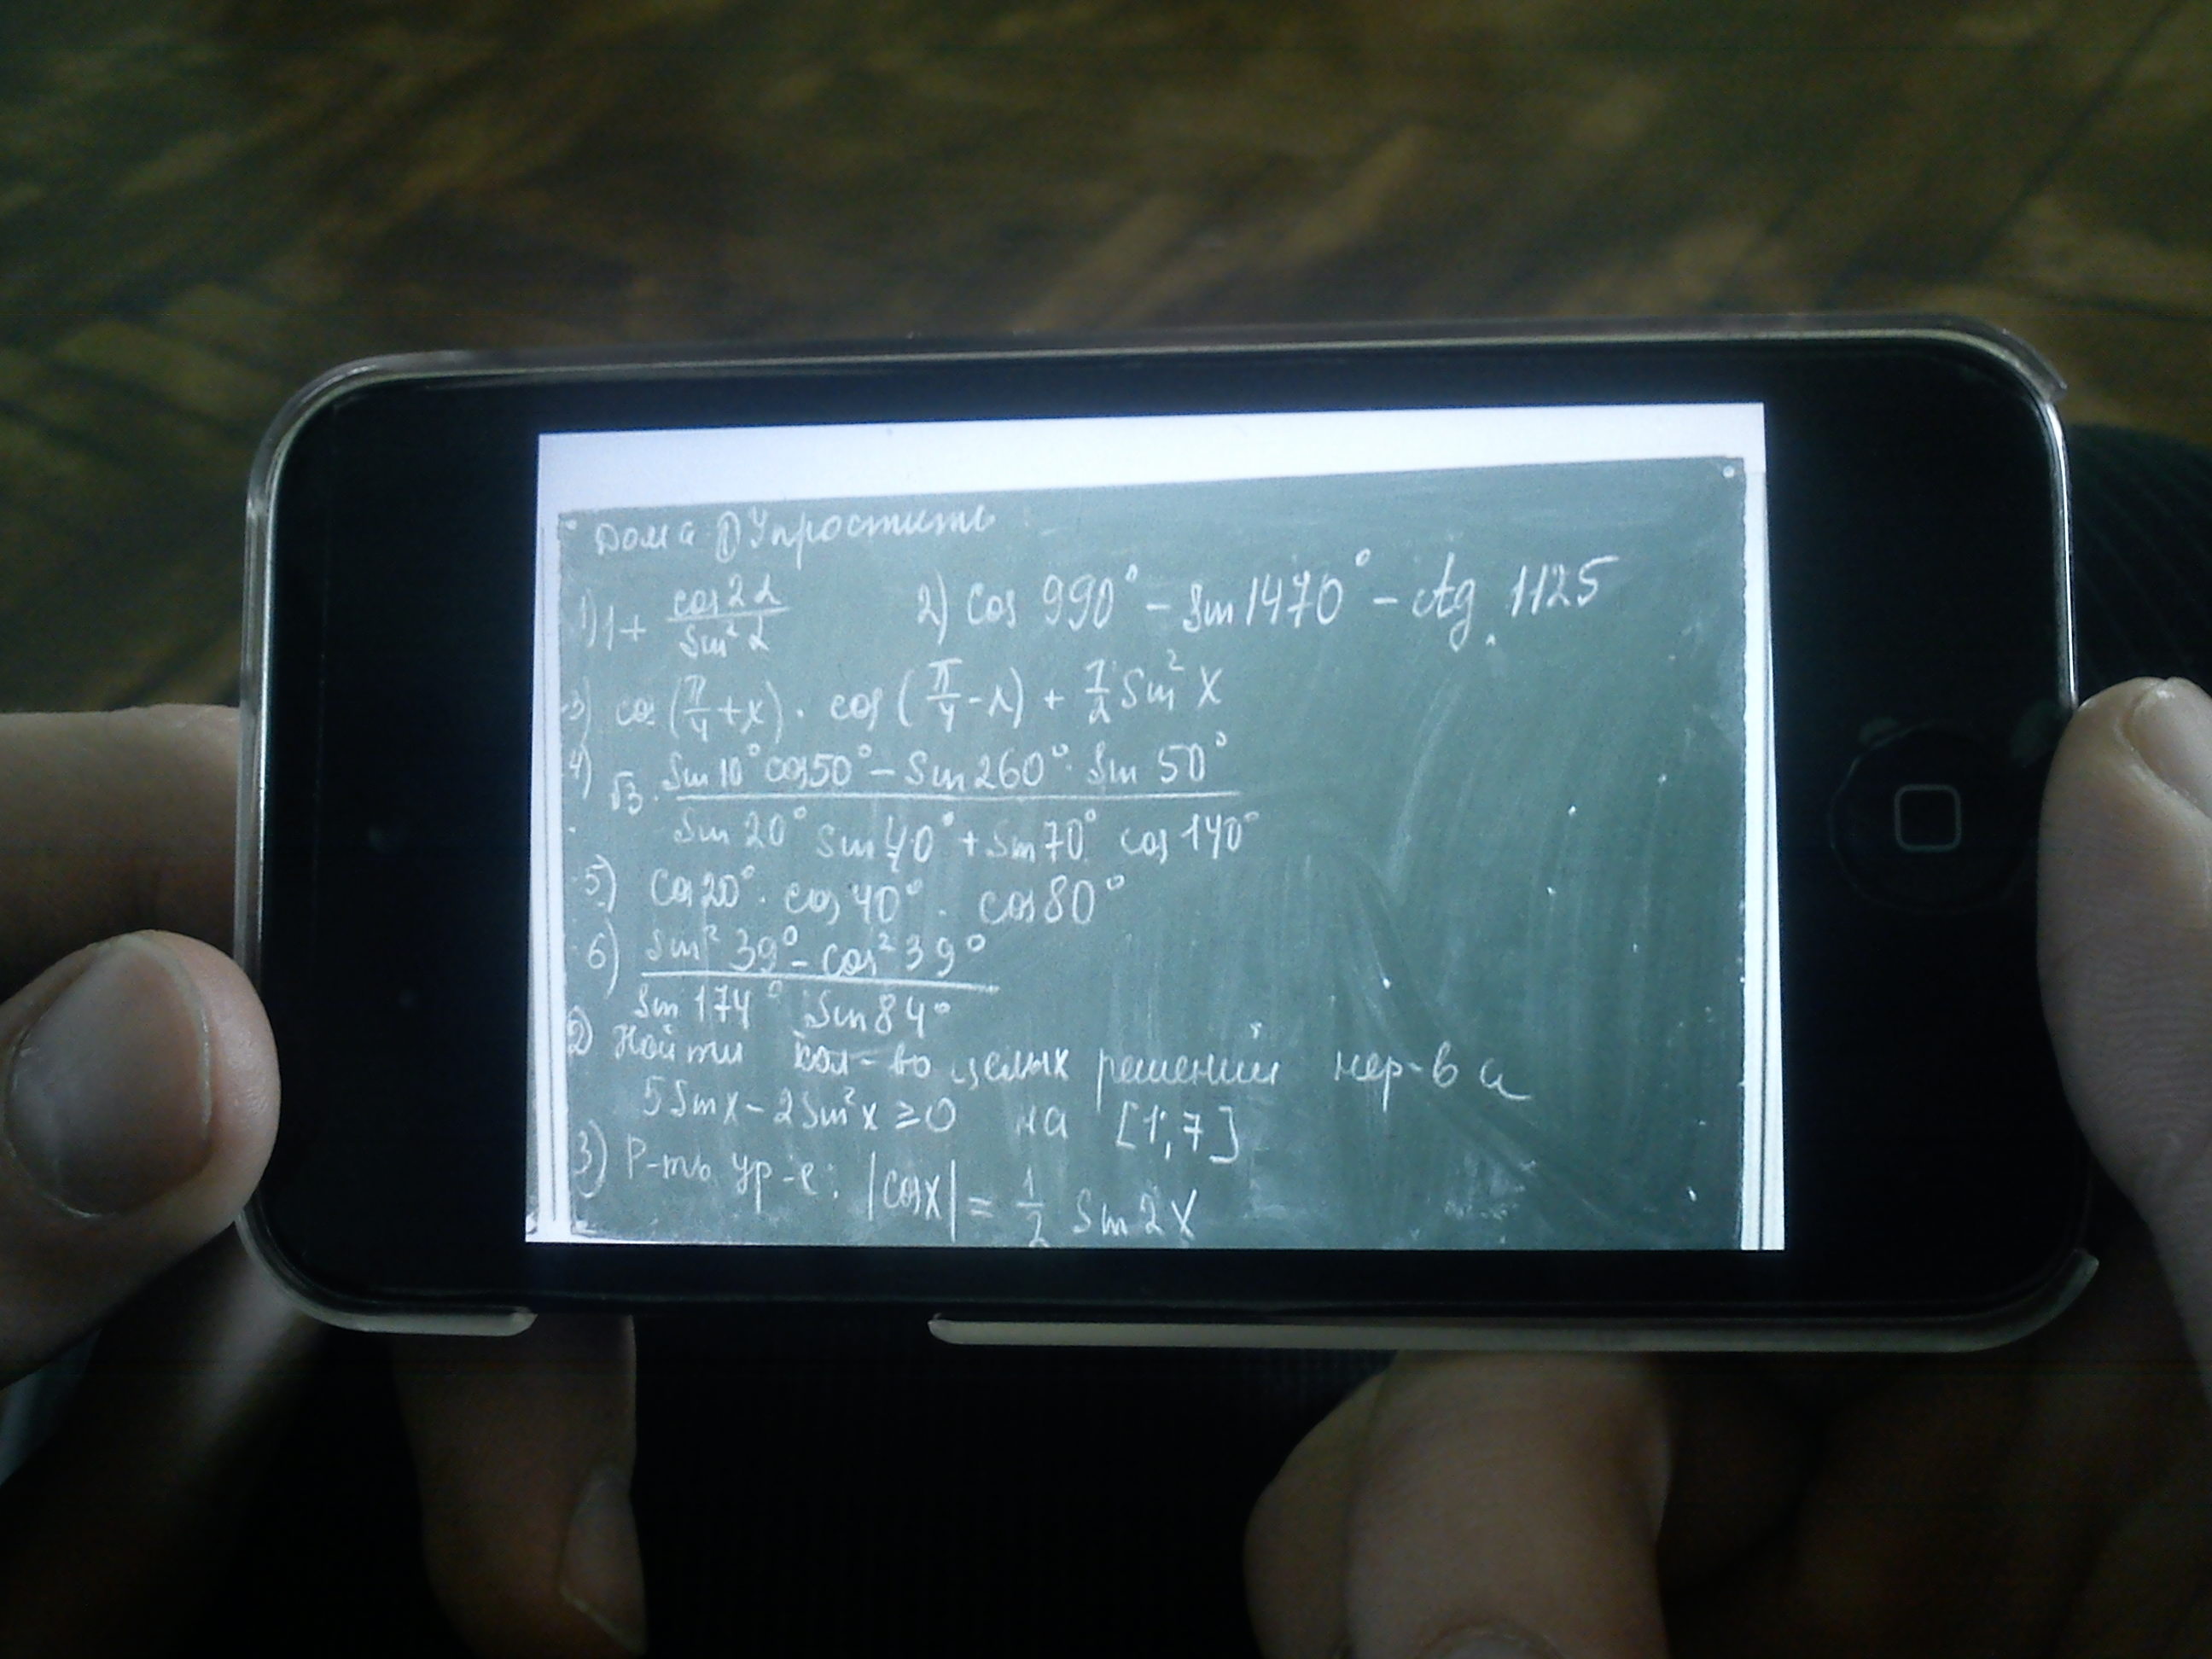 Дома ① Упростить
1) 1 + cos2α / sin²α 2) cos 990° - sin 1470° - ctg 1125
3) cos(π/4 + x) · cos(π/4 - x) + 1/2 sin² x
4) √3 · sin 10° cos 50° - sin 260° · sin 50° / sin 20° sin 40° + sin 70° cos 140°
5) cos 20° · cos 40° · cos 80°
6) sin² 39° - cos² 39° / sin 174° sin 84°
2) Найти кол-во целых решений нер-ва
5 sin x - 2 sin² x ≥ 0 на [1; 7]
3) Р-ть ур-е: |cos x| = 1/2 sin 2x